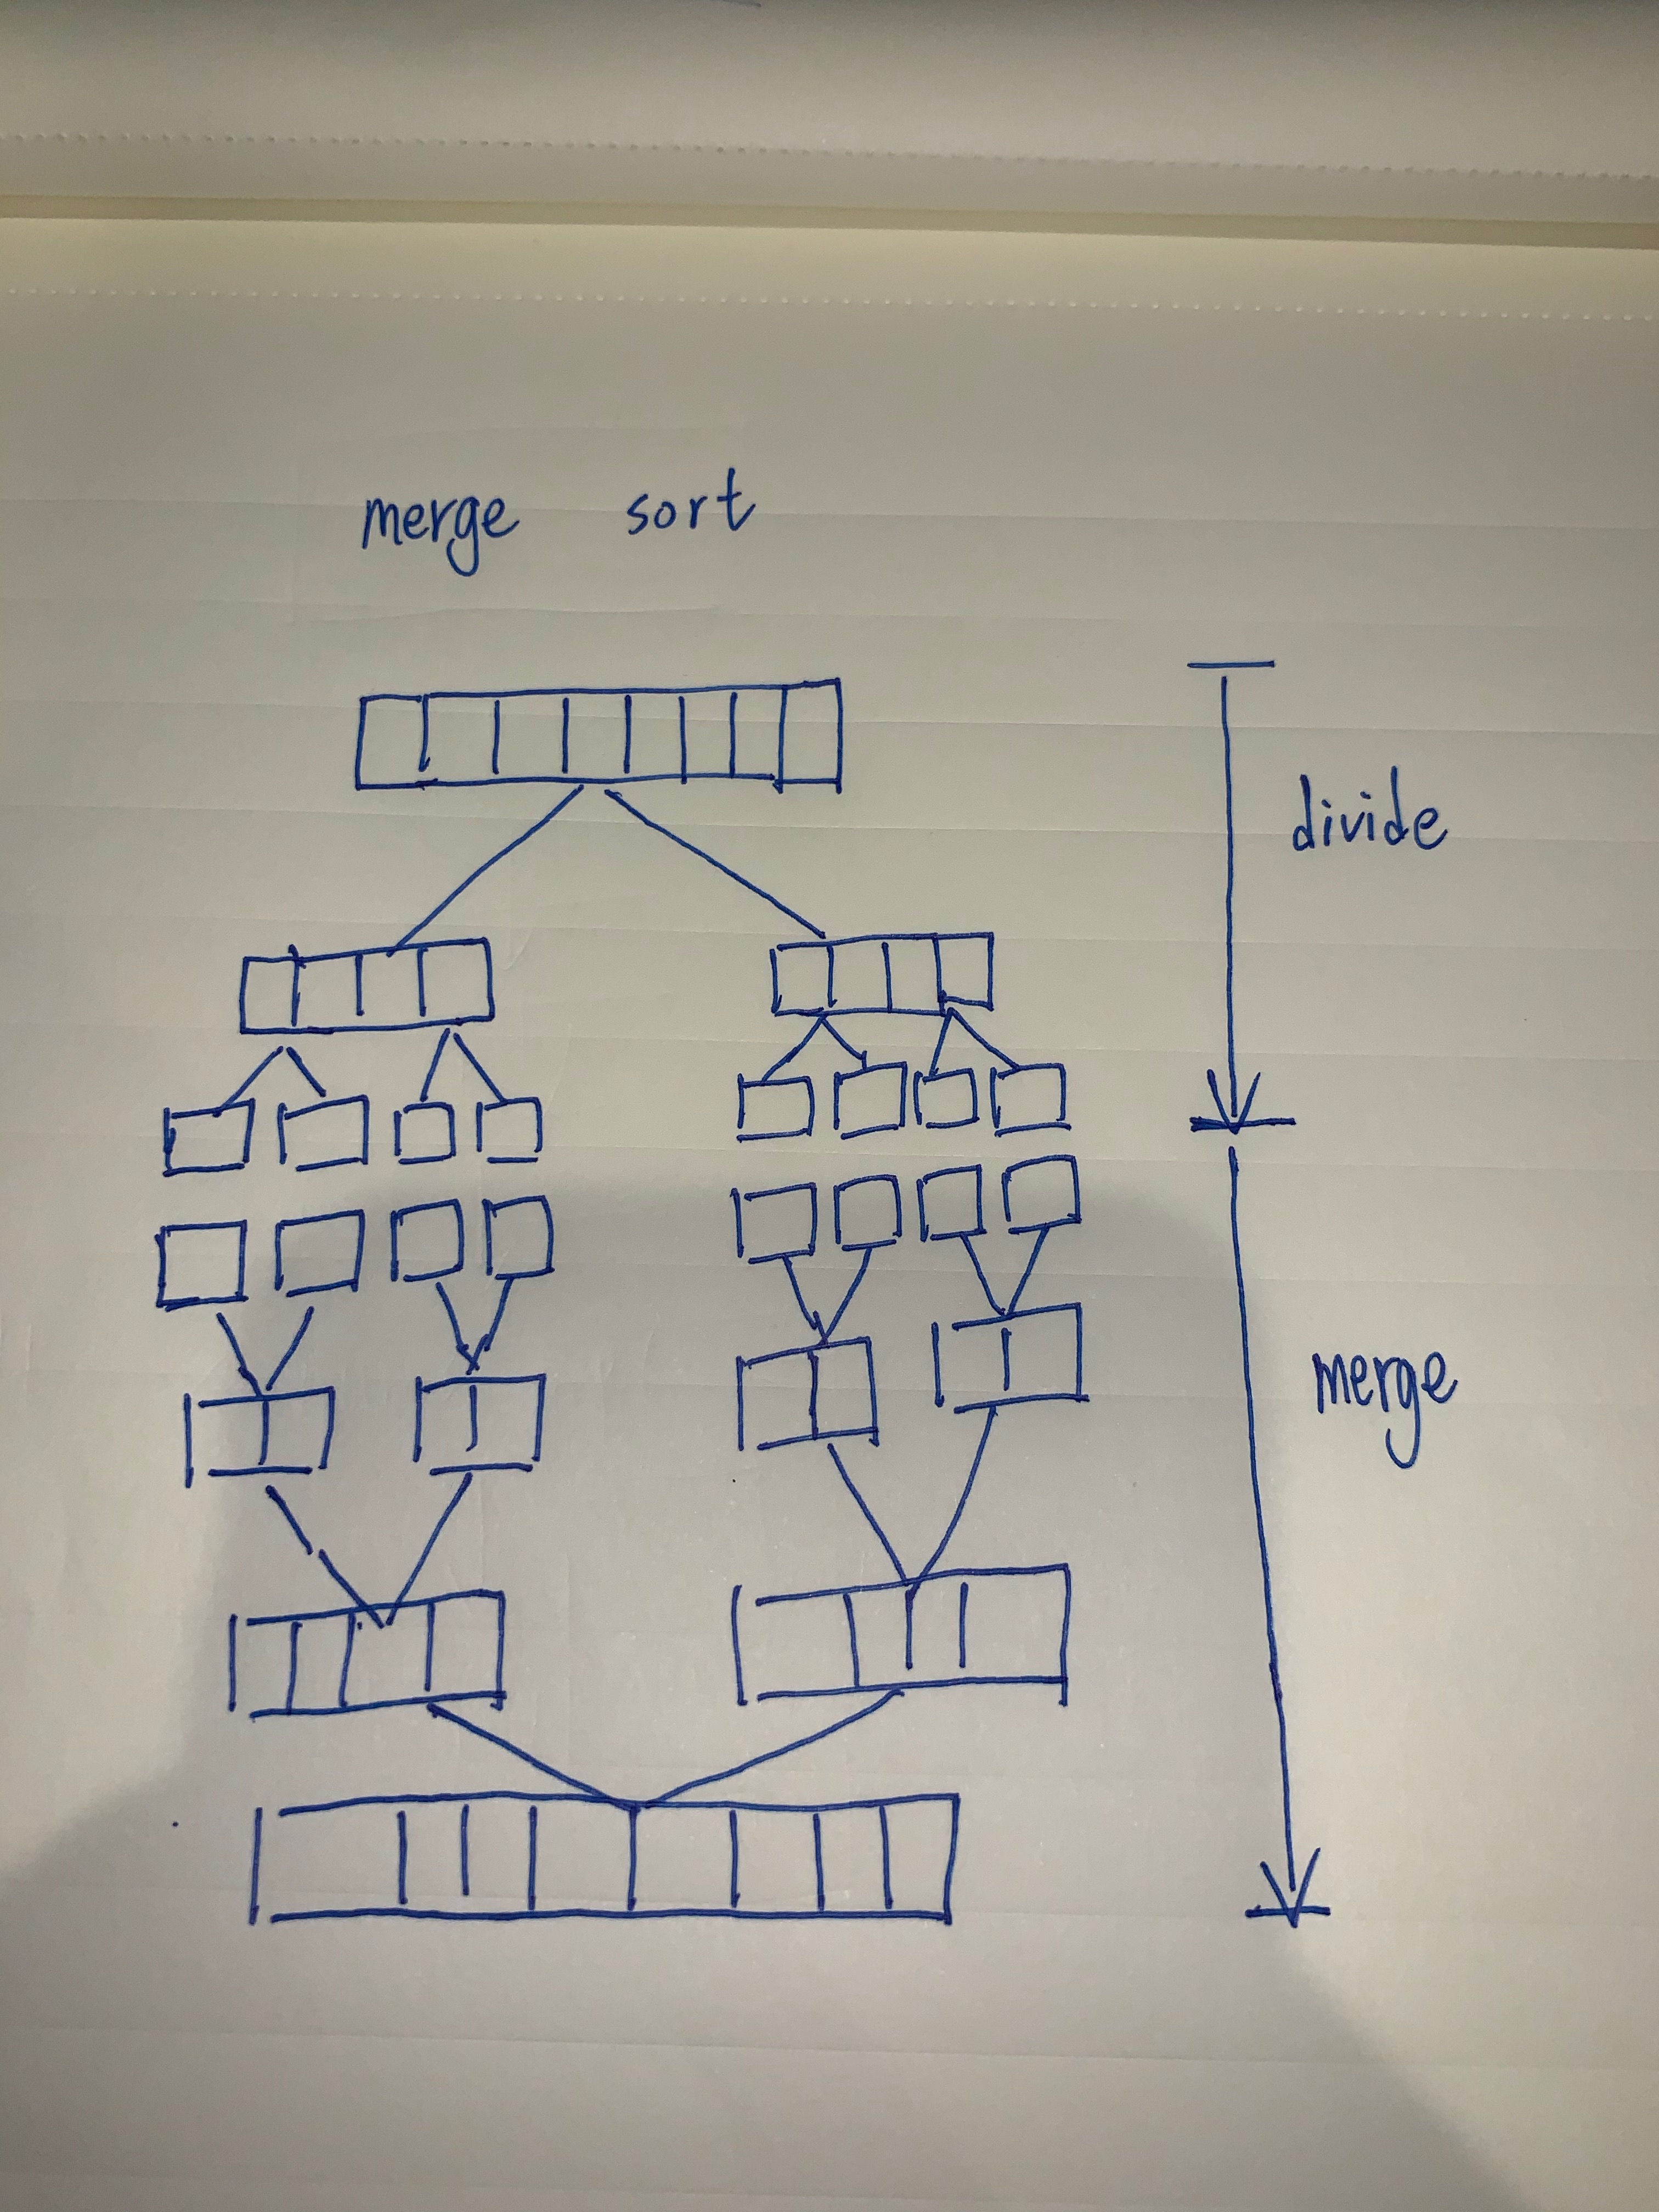 merge sort
divide
merge